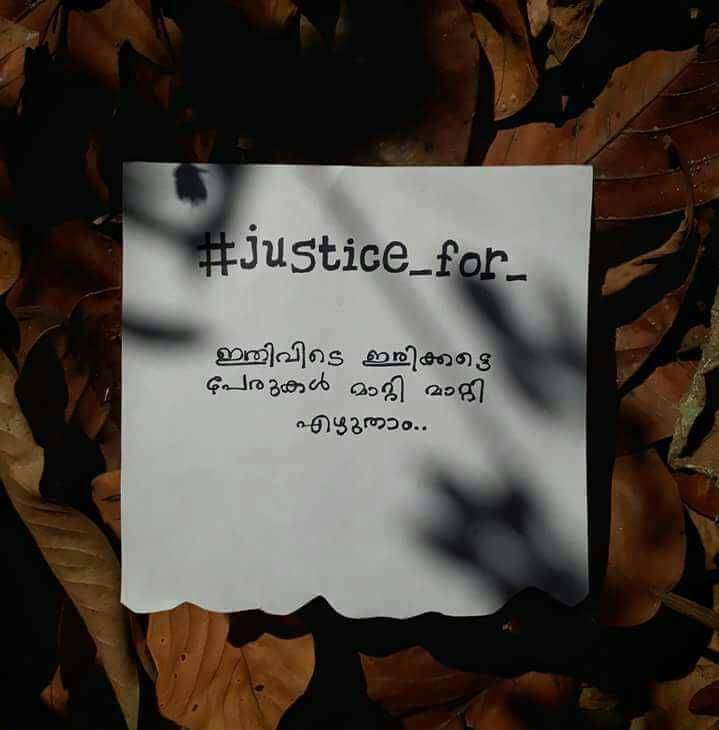 #justice_for_
ഇതിവിടെ ഇരിക്കട്ടെ
പേരുകൾ മാറ്റി മാറ്റി
എഴുതാം..